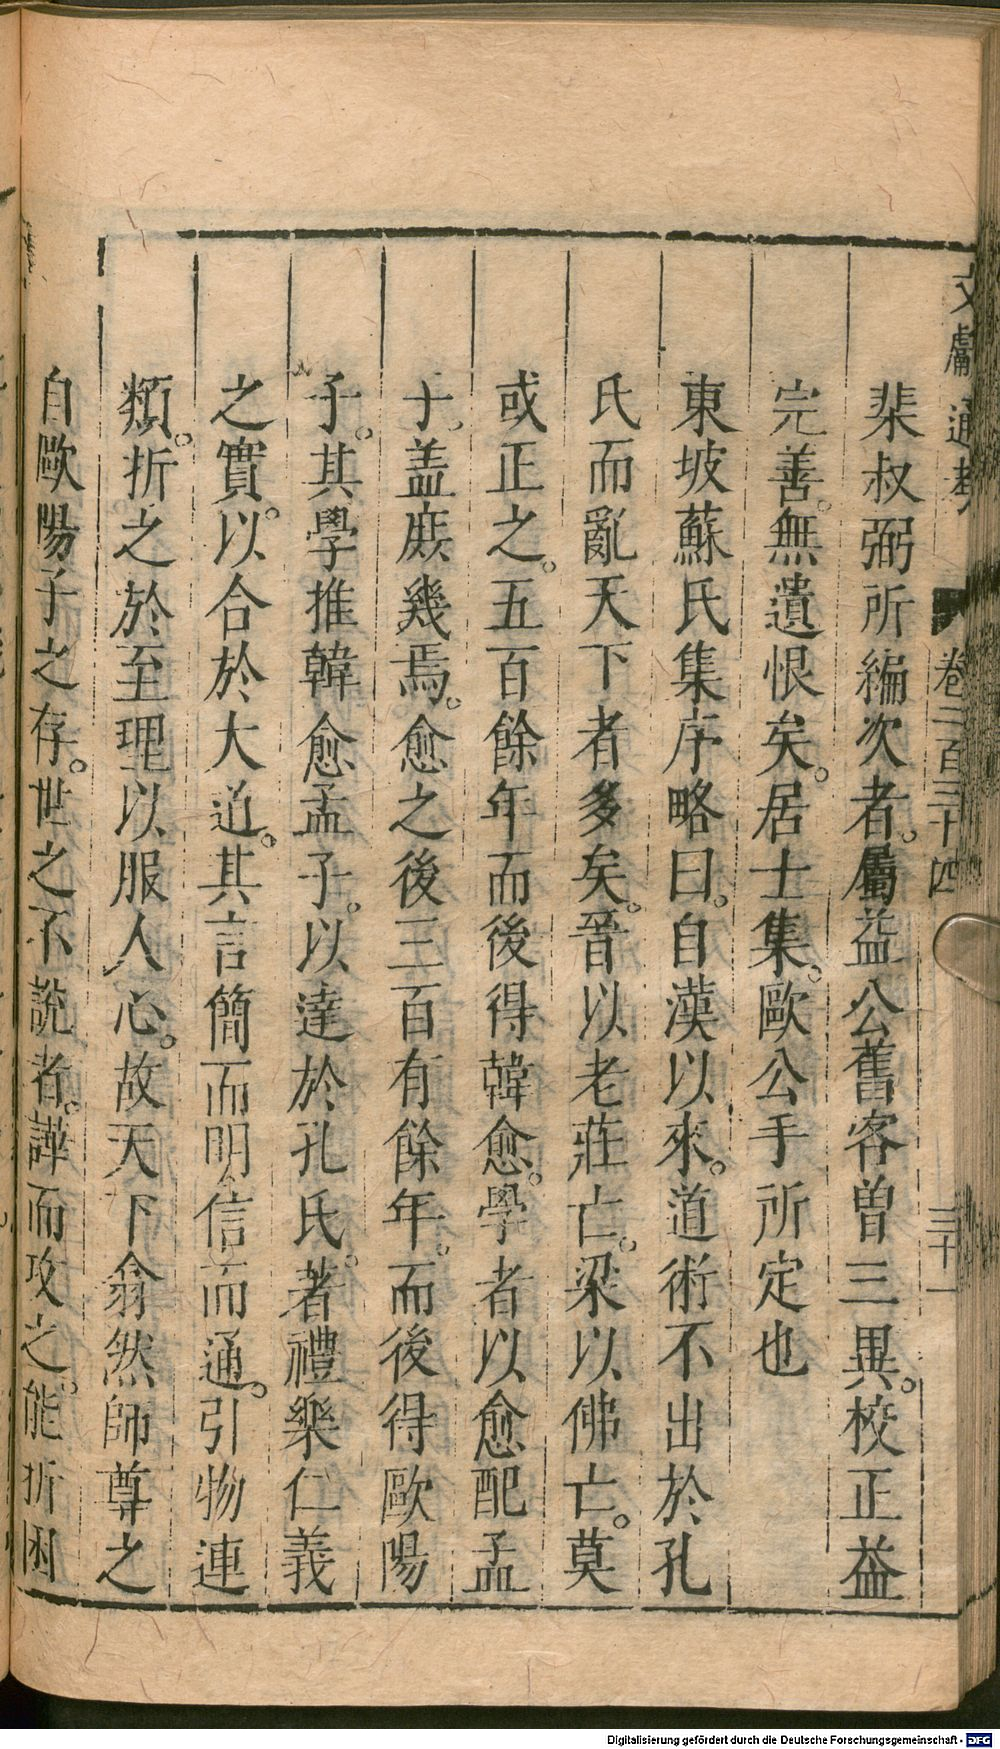 文獻通考 卷二百三十四 三十一
棐叔弼所編次者。屬益公舊客曾三異。校正益
完善。無遺恨矣。居士集。歐公手所定也
東坡蘇氏集序略曰。自漢以來。道術不出於孔
氏而亂天下者多矣。晉以老莊亡。梁以佛亡。莫
或正之。五百餘年而後得韓愈。學者以愈配孟
子。蓋庶幾焉。愈之後三百有餘年。而後得歐陽
子。其學推韓愈孟子。以達於孔氏。著禮樂仁義
之實。以合於大道。其言簡而明信而通。引物連
類。折之於至理以服人心。故天下翕然師尊之
自歐陽子之存。世之不說者。譁而攻之。能折困
Digitalisierung gefördert durch die Deutsche Forschungsgemeinschaft - DFG